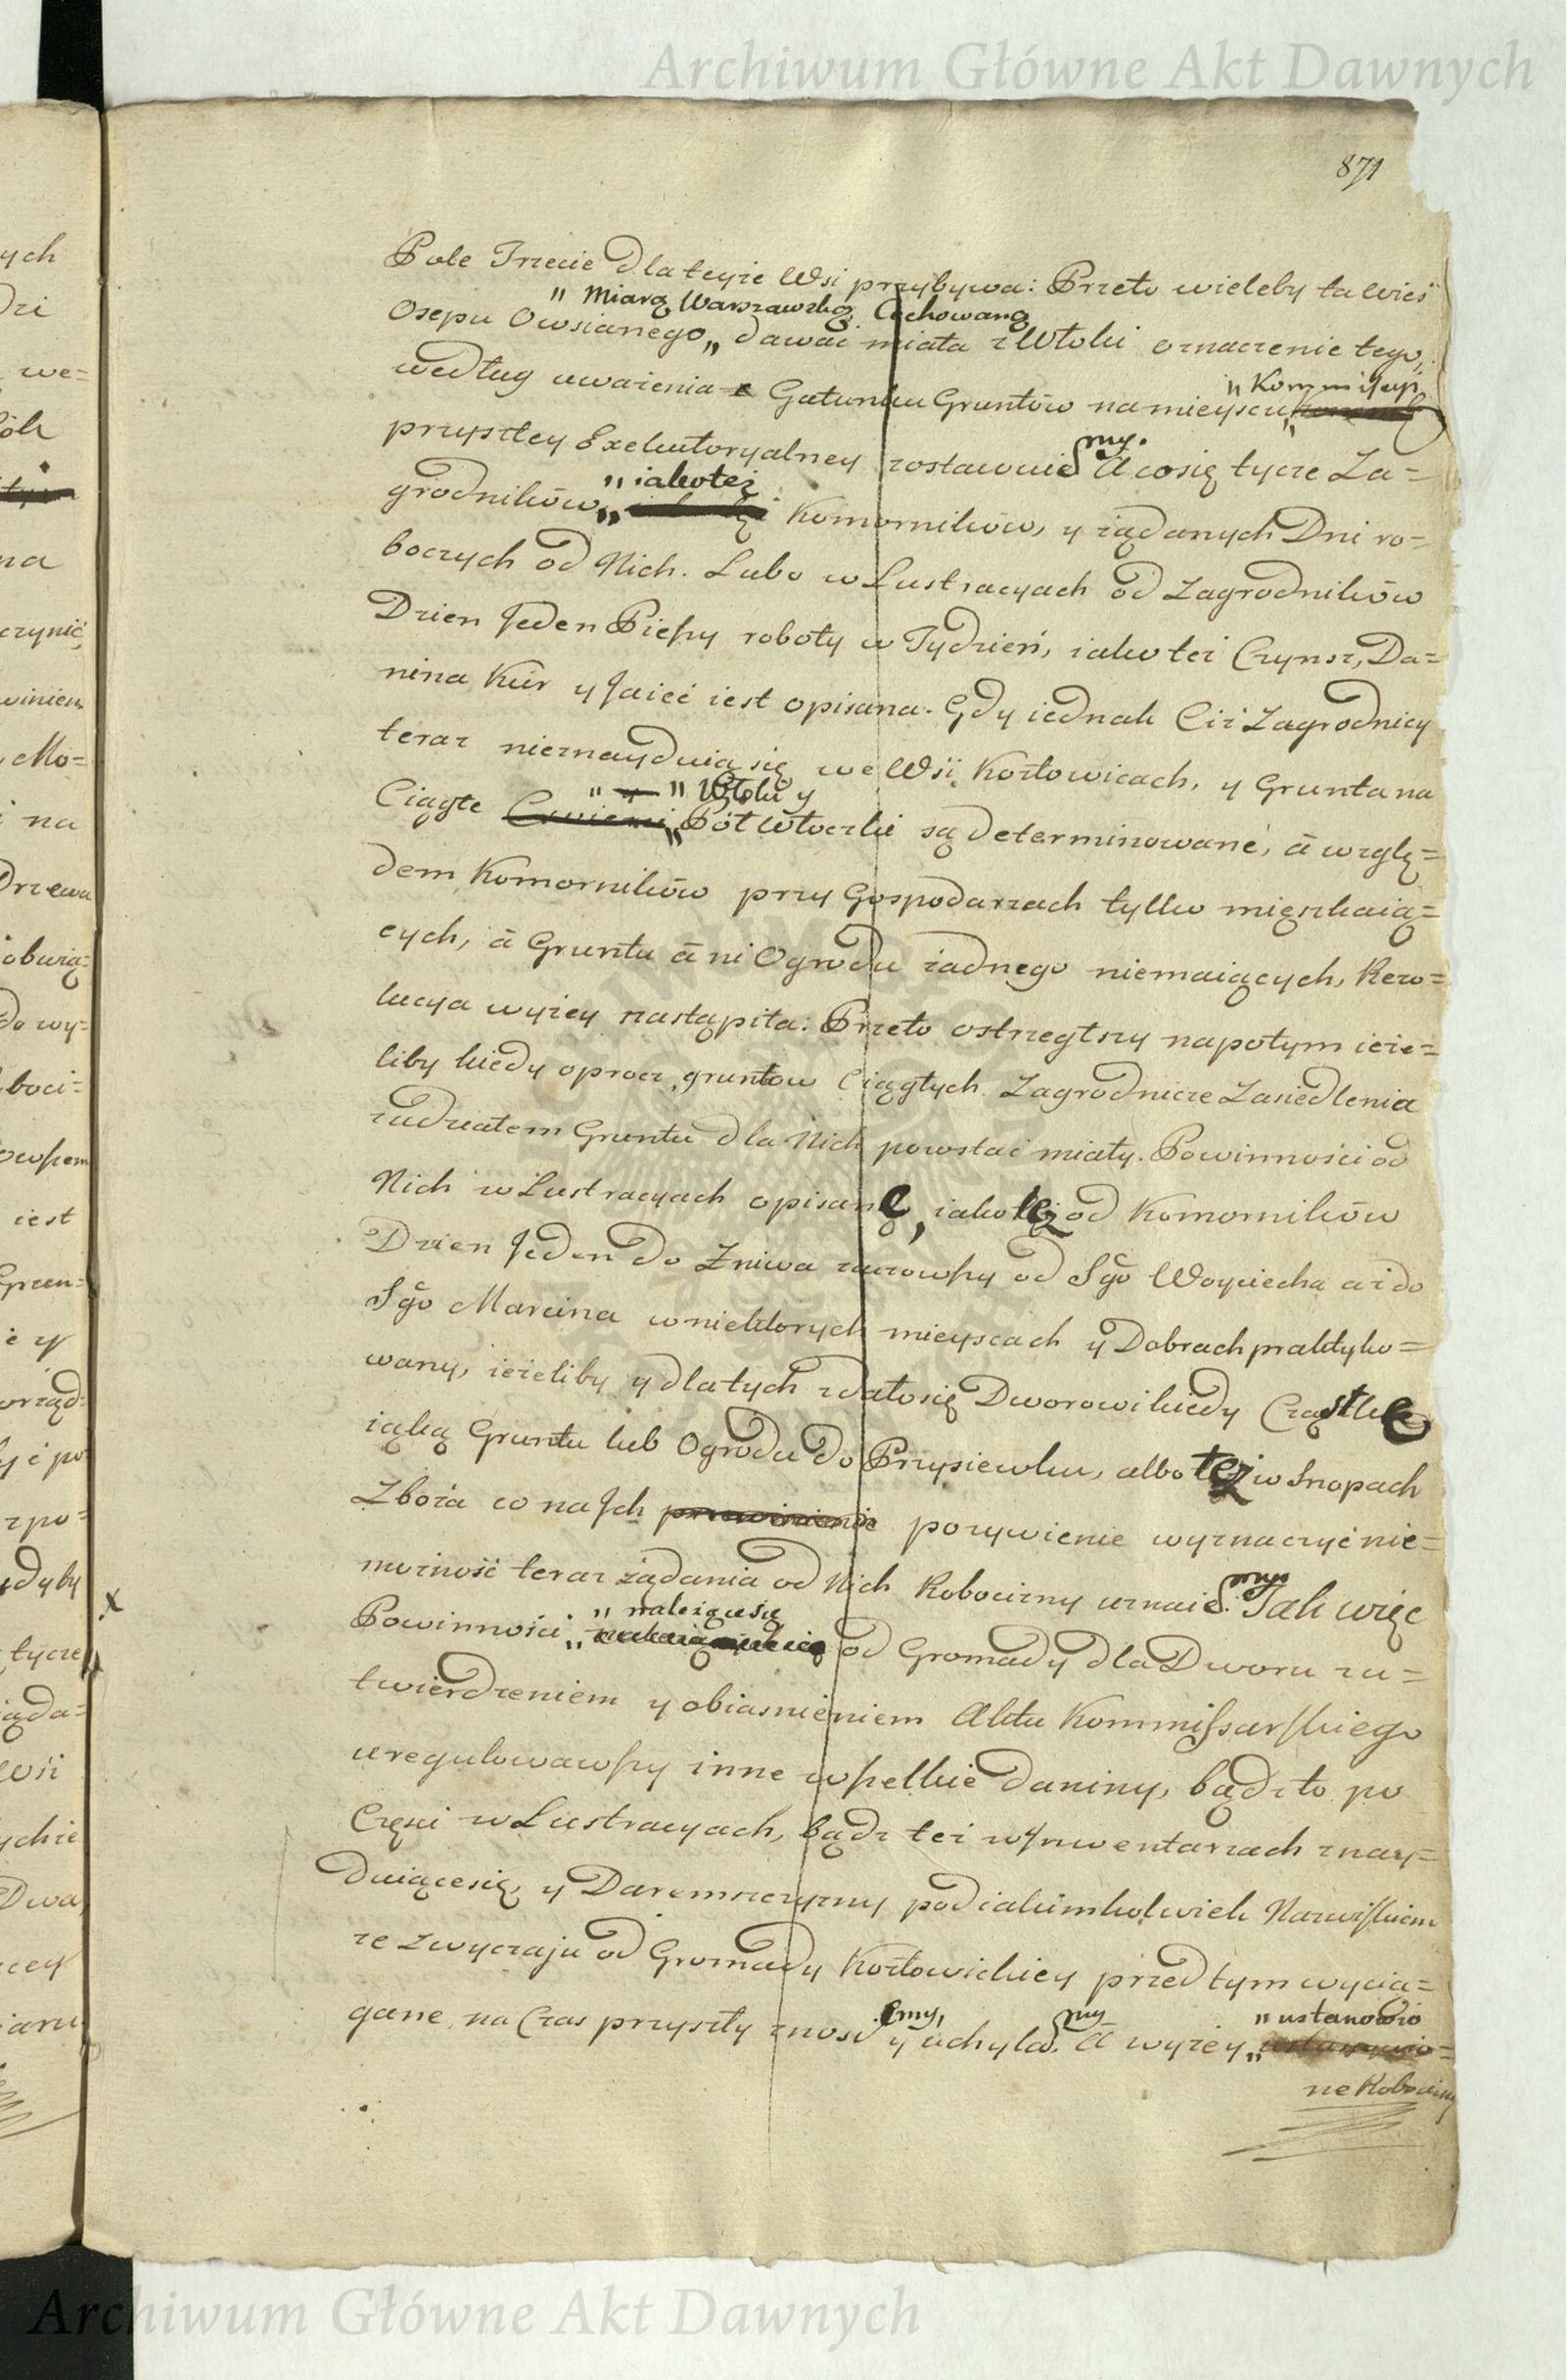 Archiwum Główne Akt Dawnych
871
Pole Trzecie dla teyże Wsi przybywa: Przeto wieleby ta wieś
„ Miarą Warszawską Cechowaną
Osepu Owsianego „ dawać miała z Włoki oznaczenie tego,
według uważenia Gatunku Gruntów na mieyscu „
„ Kommissyi
przyszłey Exekutoryalney zostawuiemy. A co się tycze Za=
grodników „ „ iakoteż Komorników, y żądanych Dni ro=
boczych od Nich. Lubo w Lustracyach od Zagrodników
Dzien Jeden Pieszy roboty w Tydzień, iako też Czynsz, Da=
nina Kur y Jaiec iest opisana. Gdy iednak Ciż Zagrodnicy
teraz nieznayduią się we Wsi Kozłowicach, y Grunta na
„ „ Włoki y
Ciągłe „ Pół włoczki są determinowane, à wzglę=
dem Komorników przy Gospodarzach tylko mięszkaią=
cych, à Gruntu à ni Ogrodu żadnego niemaiących, Rezo=
lucya wyżey nastąpiła: Przeto ostrzegłszy napotym ieże=
liby kiedy oprocz gruntow Ciągłych Zagrodnicze Zasiedlenia
z udziałem Gruntu dla Nich powstać miały. Powinności od
Nich w Lustracyach opisane, iako też od Komorników
Dzien Jeden do Żniwa zacząwszy od Sgo Woyciecha aż do
Sgo Marcina w niektorych mieyscach y Dobrach praktyko=
wany, ieżeliby y dla tych zdało się Dworowi kiedy Cząstkę
iąką Gruntu lub Ogrodu do Przysiewku, albo też w Snopach
Zboża co na Ich pożywienie wyznaczyć nie=
możność teraz żądania od Nich Robocizny uznaiemy. Tak więc
„ należące się
Powinności „ od Gromady dla Dworu za=
twierdzeniem y obiasnieniem Aktu Kommissarskiego
uregulowawszy inne wszelkie daniny, bądź to po
Części w Lustracyach, bądź też w Inwentarzach znay=
duiące się, y Daremszczyzny pod iakimkolwiek Nazwiskiem
ze zwyczaju od Gromady Kozłowickiey przed tym wycią=
gane na Czas przyszły znosiemy, y uchylamy. A wyżey „ „ ustanowio
ne Robocizny
Archiwum Główne Akt Dawnych